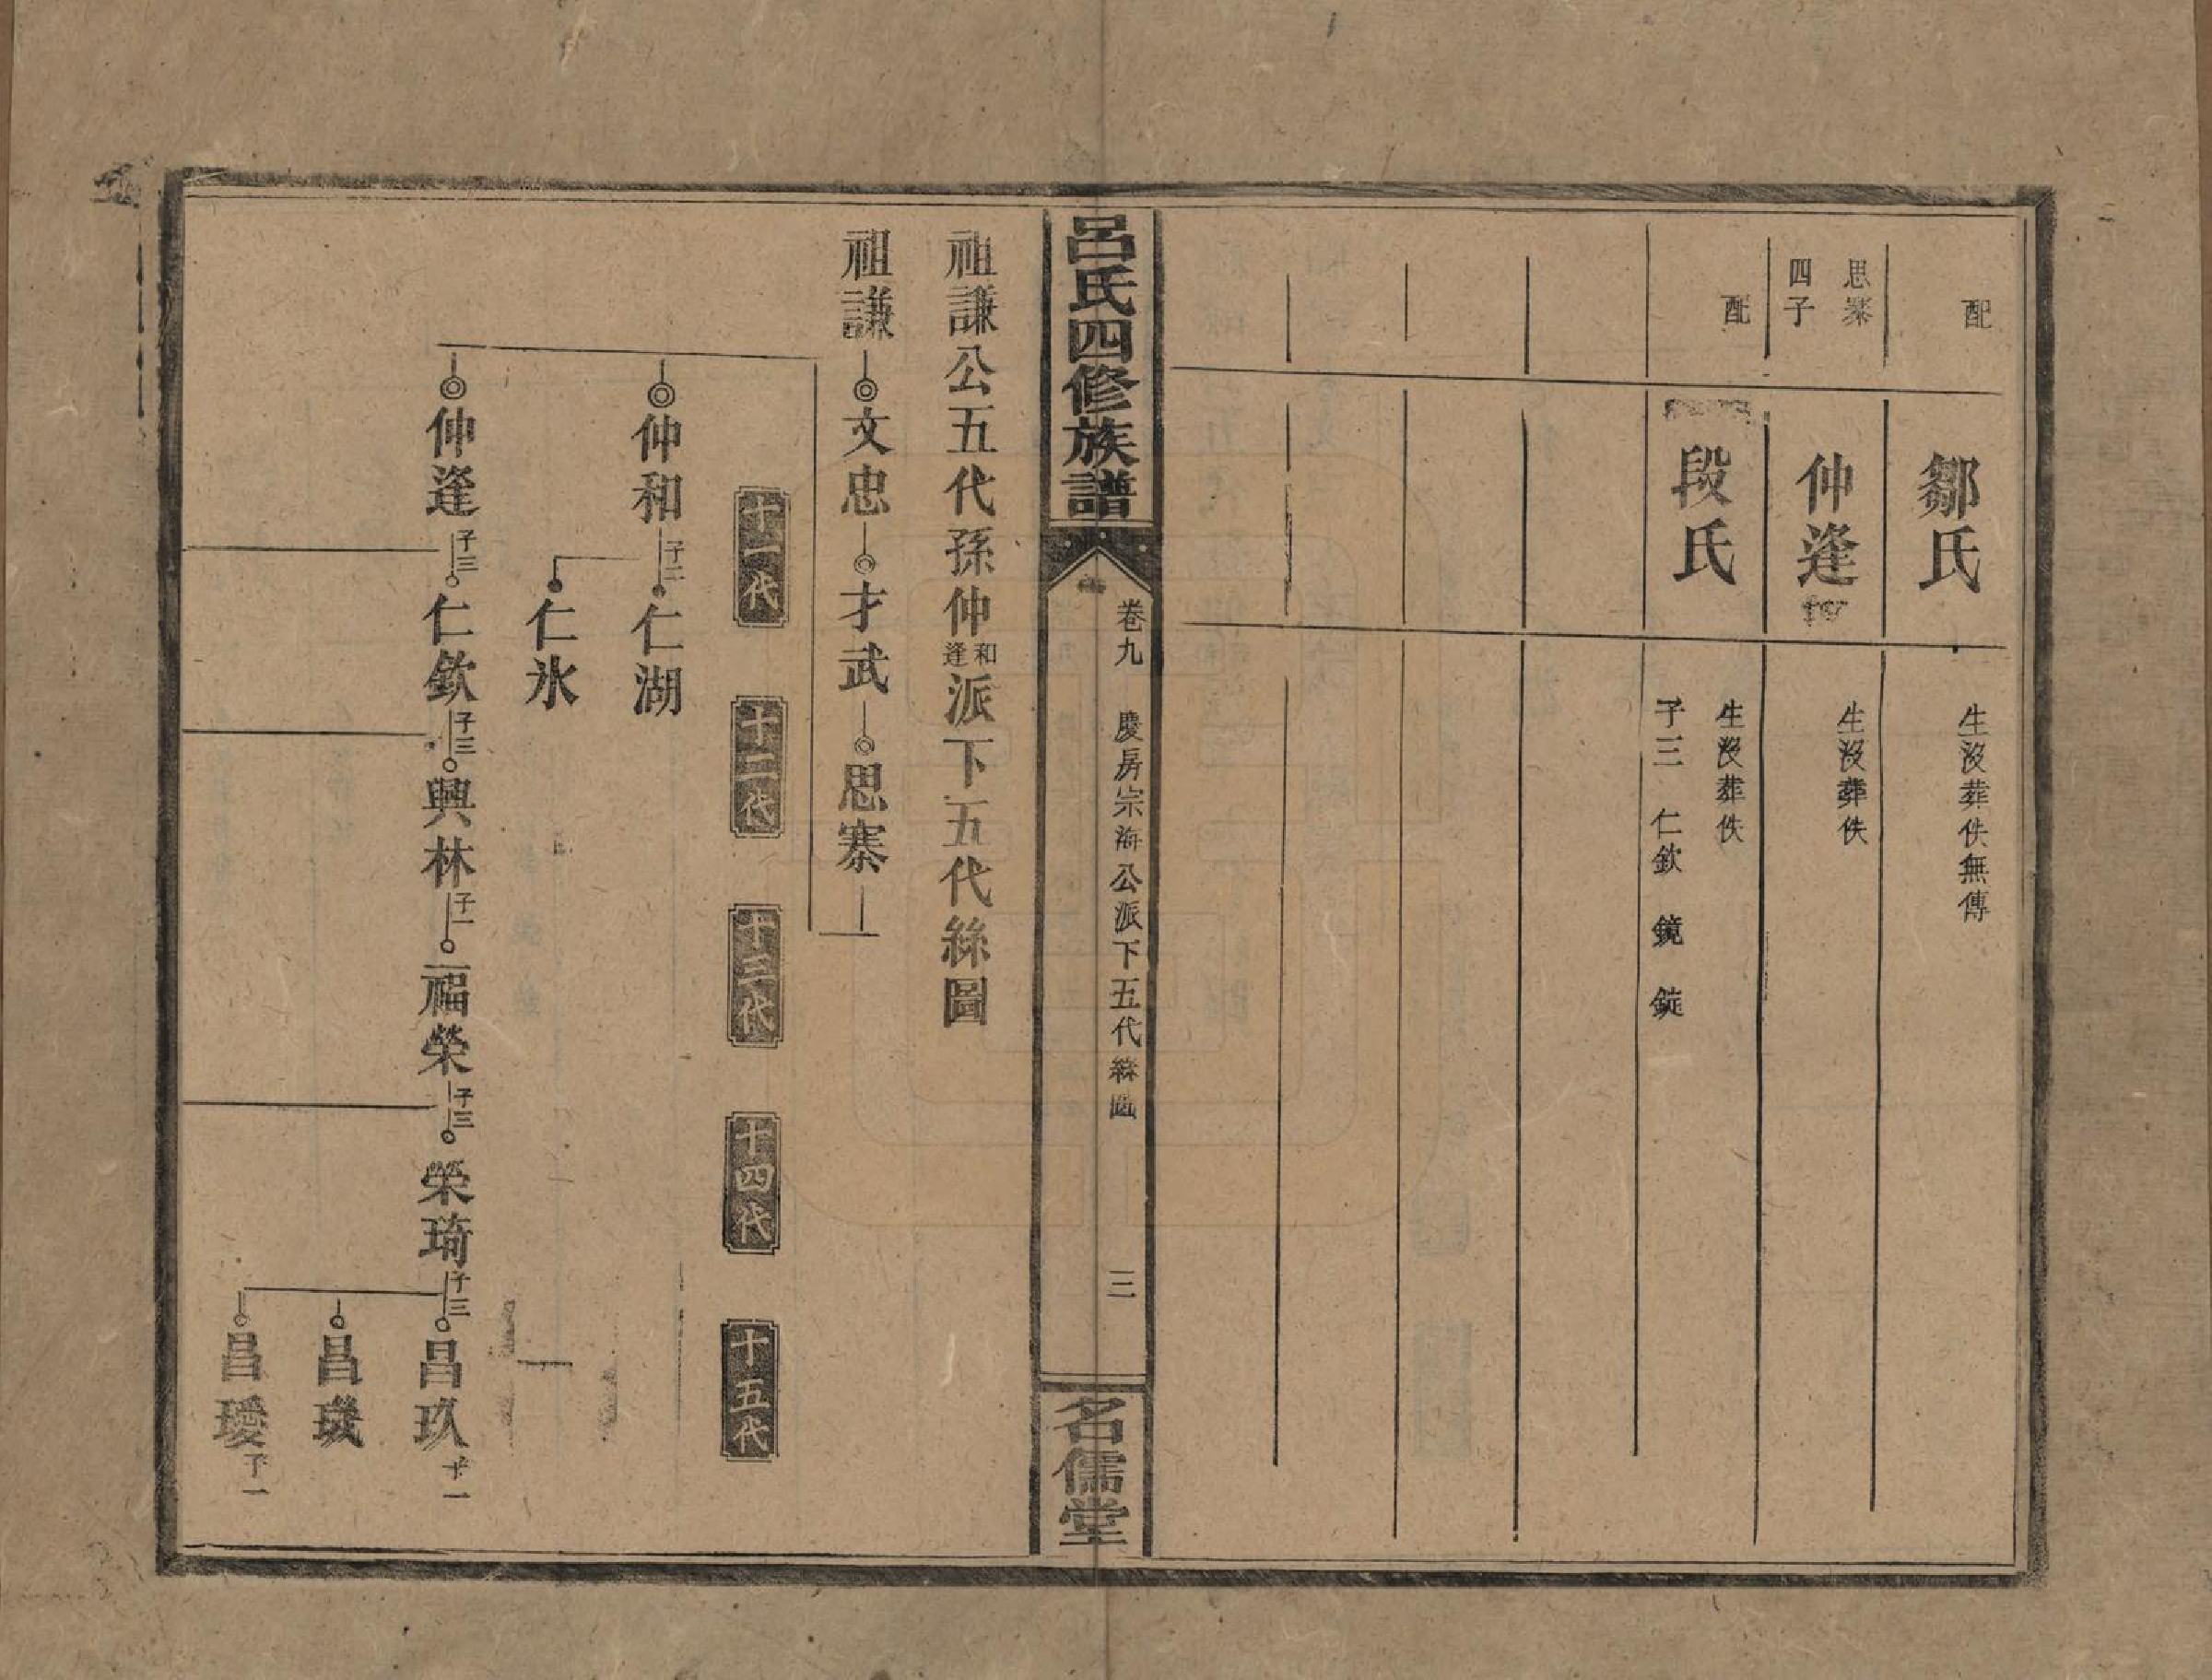 配
鄒氏
生沒葬佚無傳
思寨
四子
仲逢
生沒葬佚
配
段氏
生沒葬佚
子三 仁欽 鏡 錠
呂氏四修族譜
卷九 慶房宗海公派下五代絲圖
三
名儒堂
祖謙公五代孫仲和逢派下五代絲圖
祖謙 文忠 才武 思寨
十一代 十二代 十三代 十四代 十五代
仲和 子二 仁湖
仁氷
仲逢 子三 仁欽 子三 興林 子一 福榮 子三 榮琦 子三 昌玖 子一
昌璣
昌璦 子一